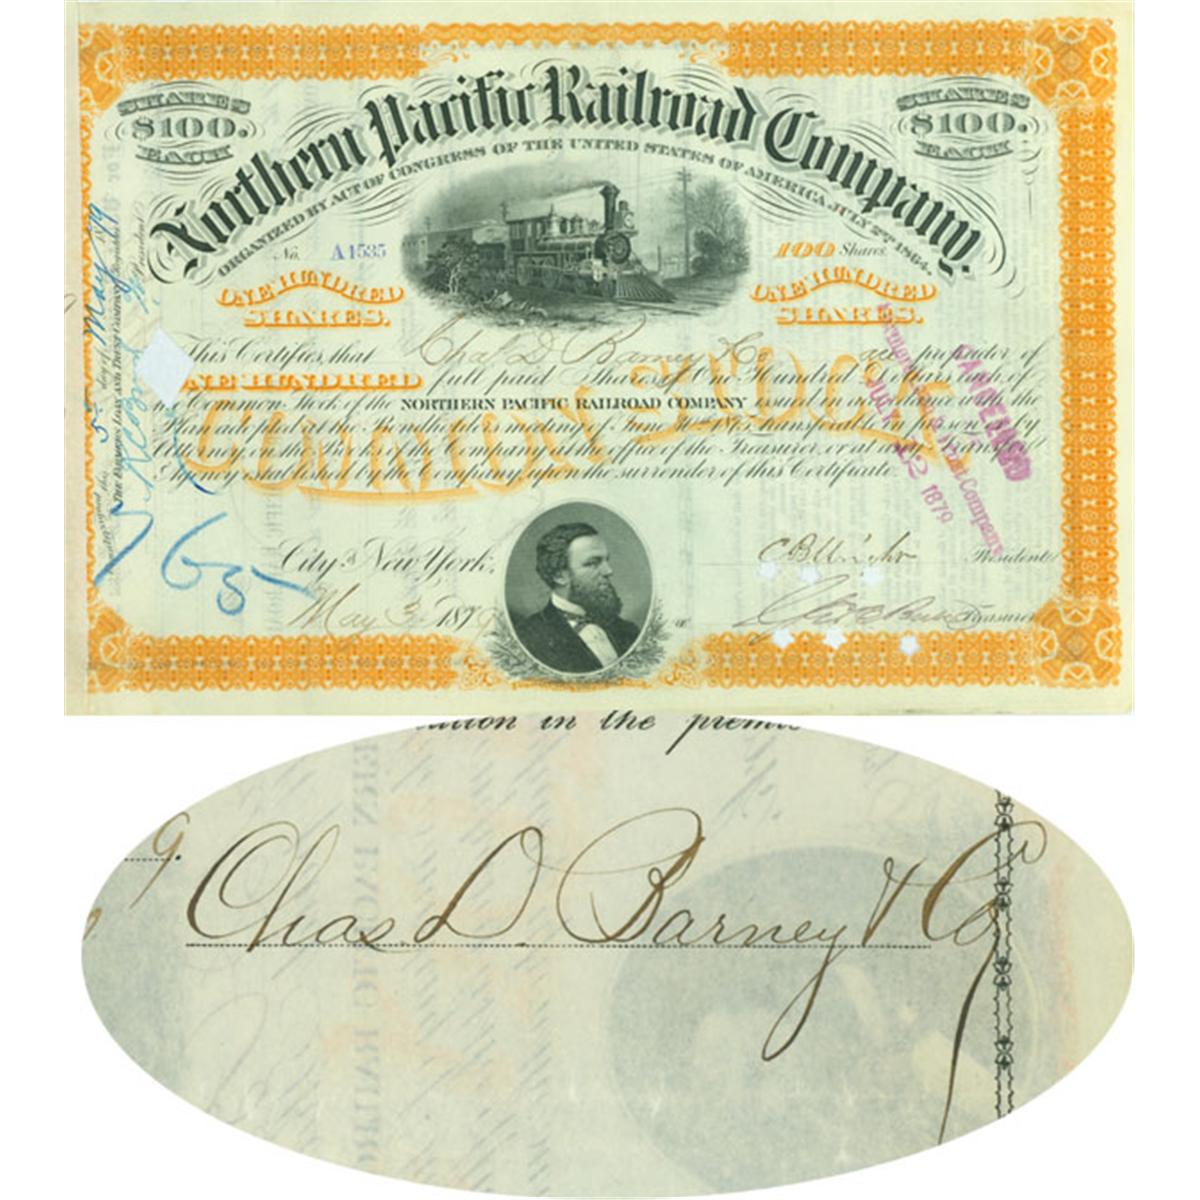 SHARES
$100.
EACH
Northern Pacific Railroad Company.
SHARES
$100.
EACH
ORGANIZED BY ACT OF CONGRESS OF THE UNITED STATES OF AMERICA, JULY 2D 1864.
No. A4535
100 Shares
ONE HUNDRED
SHARES.
ONE HUNDRED
SHARES.
This Certifies that Chas D. Barney & Co are proprietor of
ONE HUNDRED full paid Shares of One Hundred Dollars each of
the Common Stock of the NORTHERN PACIFIC RAILROAD COMPANY issued in accordance with the
Plan adopted at the Bondholders meeting of June 30th 1875 transferable in person or by
Attorney on the books of the Company at the office of the Treasurer, or at any Transfer
Agency established by the Company upon the surrender of this Certificate.
COMMON STOCK
CANCELLED
JULY 12 1879
Company
City of New York,
May 3 1879
C B Wright President
Treasurer
Countersigned this 5 day of May 1879
THE FARMERS LOAN AND TRUST COMPANY Registrar
President
ution in the premis
9.
Chas. D. Barney & Co